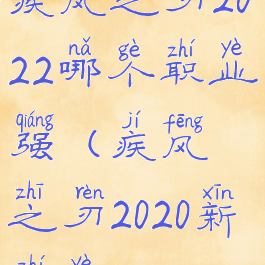 疾风之刃20
nǎ gè zhí yè
22哪个职业
qiáng jí fēng
强（疾风
zhī rèn xīn
之刃2020新
zhí yè